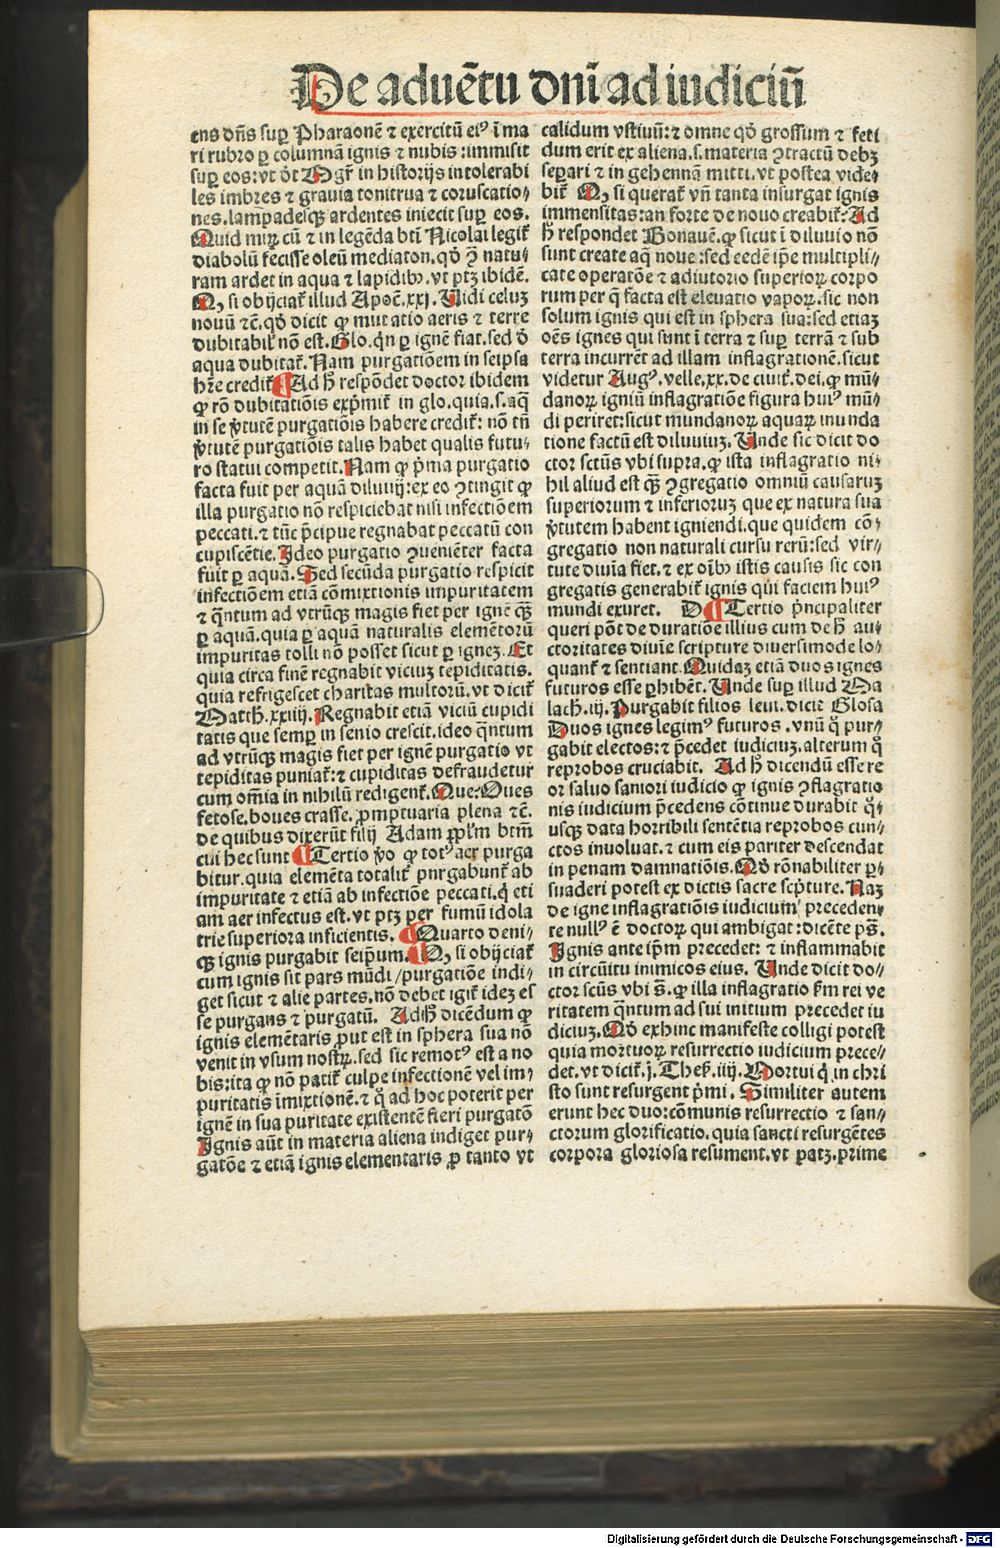 De aduētu dn̄i ad iudiciū
ens dn̄s suꝑ Pharaonē ⁊ exercitū eiꝰ ī ma
ri rubro ꝑ columnā ignis ⁊ nubis: immisit
suꝑ eos: vt dt̄ Mgr̄ in historijs intolerabi
les imbres ⁊ grauia tonitrua ⁊ coruscatio⸗
nes. lampadesqꝫ ardentes iniecit suꝑ eos.
Quid miꝝ cū ⁊ in legēda bt̄i Nicolai legit᷑
diabolū fecisse oleū mediaton. qd̓ ꝯ natu⸗
ram ardet in aqua ⁊ lapidibꝫ. vt ptꝫ ibidē.
Qꝫ si obijciat᷑ illud Apoc̄. xxj. Uidi celuꝫ
nouū ⁊c̄. qd̓ dicit ꝙ mutatio aeris ⁊ terre
dubitabil̓ nō est. Glo. qn̄ ꝑ ignē fiat. sed d̓
aqua dubitat᷑. Nam purgatiōem in seipsa
hr̄e credit᷑ ¶ Ad hͦ respōdet doctor ibidem
ꝙ rō dubitatiōis exp̄mit᷑ in glo. quia. s. aq̄
in se v̓tutē purgatiōis habere credit᷑: nō tn̄
v̓tutē purgatiōis talis habet qualis futu⸗
ro statui competit. Nam ꝙ p̄ma purgatio
facta fuit per aquā diluuij: ex eo ꝯtingit ꝙ
illa purgatio nō respiciebat nisi infectiōem
peccati. ⁊ tūc p̄cipue regnabat peccatū con
cupiscētie. Ideo purgatio ꝯueniēter facta
fuit ꝑ aquā. Sed secūda purgatio respicit
infectiōem etiā cōmixtionis impuritatem
⁊ q̄ntum ad vtrūqꝫ magis fiet per ignē qꝫ̄
ꝑ aquā. quia ꝑ aquā naturalis elemētorū
impuritas tolli nō posset sicut ꝑ ignez. Et
quia circa finē regnabit viciuꝫ tepiditatis.
quia refrigescet charitas multorū. vt dicit᷑
Matth. xxiiij. Regnabit etiā viciū cupidi
tatis que semꝑ in senio crescit. ideo q̄ntum
ad vtrūqꝫ magis fiet per ignē purgatio vt
tepiditas puniat᷑: ⁊ cupiditas defraudetur
cum om̄ia in nihilū redigent᷑. Que: Oues
fetose. boues crasse. ꝓmptuaria plena ⁊c̄.
de quibus dixerūt filij Adam ppl̓m btm̄
cui hec sunt ¶ Tertio v̓o ꝙ totꝰ aer purga
bitur. quia elemēta totalit᷑ purgabunt᷑ ab
impuritate ⁊ etiā ab infectiōe peccati. q̇ eti
am aer infectus est. vt ptꝫ per fumū idola
trie superiora inficientis. ¶ Quarto deni⸗
qꝫ ignis purgabit seip̄um. ¶ Qꝫ si obijciat᷑
cum ignis sit pars mūdi / purgatiōe indi⸗
get sicut ⁊ alie partes. nō debet igit᷑ idez es
se purgans ⁊ purgatū. Ad hͦ dicēdum ꝙ
ignis elemētaris ꝓut est in sphera sua nō
venit in vsum nostꝝ. sed sic remotꝰ est a no
bis: ita ꝙ nō patit᷑ culpe infectionē vel im⸗
puritatis īmixtionē. ⁊ q̄ ad hoc poterit per
ignē in sua puritate existentē fieri purgatō
Ignis aūt in materia aliena indiget pur⸗
gatōe ⁊ etiā ignis elementaris ꝓ tanto vt
calidum vstiuū: ⁊ omne qd̓ grossum ⁊ feti
dum erit ex aliena. s. materia ꝯtractū debꝫ
separi ⁊ in gehennā mitti. vt postea vide⸗
bit᷑. Qꝫ si querat᷑ vn̄ tanta insurgat ignis
immensitas: an forte de nouo creabit᷑: Ad
hͦ respondet Bonauē. ꝙ sicut ī diluuio nō
sunt create aq̄ noue: sed eedē ip̄e multipli⸗
cate operatōe ⁊ adiutorio superioꝝ corpo
rum per q̄ facta est eleuatio vapoꝝ. sic non
solum ignis qui est in sphera sua: sed etiaꝫ
oēs ignes qui sunt ī terra ⁊ suꝑ terrā ⁊ sub
terra incurrēt ad illam inflagrationē. sicut
videtur Augꝰ. velle. xx. de ciuit̄. dei. ꝙ mū⸗
danoꝝ igniū inflagratiōe figura huiꝰ mū⸗
di periret: sicut mundanoꝝ aquaꝝ inunda
tione factū est diluuiuꝫ. Unde sic dicit do
ctor sctūs vbi supra. ꝙ ista inflagratio ni⸗
hil aliud est qꝫ̄ ꝯgregatio omniū causaruꝫ
superiorum ⁊ inferioruꝫ que ex natura sua
v̓tutem habent igniendi. que quidem cō⸗
gregatio non naturali cursu rerū: sed vir⸗
tute diuīa fiet. ⁊ ex oībꝫ istis causis sic con
gregatis generabit᷑ ignis qui faciem huiꝰ
mundi exuret. D ¶ Tertio p̄ncipaliter
queri pōt de duratiōe illius cum de hͦ au⸗
ctoritates diuīe scripture diuersimode lo⸗
quant᷑ ⁊ sentiant. Quidaꝫ etiā duos ignes
futuros esse ꝑhibēt. Unde suꝑ illud Ma
lach. iij. Purgabit filios leui. dicit Glosa
Duos ignes legimꝰ futuros. vnū q̇ pur⸗
gabit electos: ⁊ p̄cedet iudiciuꝫ. alterum q̇
reprobos cruciabit. Ad hͦ dicendū esse re
or saluo saniori iudicio ꝙ ignis ꝯflagratio
nis iudicium p̄cedens cōtinue durabit q̇⸗
usqꝫ data horribili sentētia reprobos cun⸗
ctos inuoluat. ⁊ cum eis pariter descendat
in penam damnatiōis. Qd̓ rōnabiliter ꝑ⸗
suaderi potest ex dictis sacre scpt̄ure. Naꝫ
de igne inflagratiōis iudicium precedēn⸗
te nullꝰ ē doctoꝝ qui ambigat: dicēte ps̄.
Ignis ante ip̄m precedet: ⁊ inflammabit
in circūitu inimicos eius. Unde dicit do⸗
ctor sctūs vbi s̄. ꝙ illa inflagratio ẜm rei ve
ritatem q̄ntum ad sui initium precedet iu
diciuꝫ. Qd̓ exhinc manifeste colligi potest
quia mortuoꝝ resurrectio iudicium prece⸗
det. vt dicit᷑. j. Thes̄. iiij. Mortui q̇ in chri
sto sunt resurgent p̄mi. Similiter autem
erunt hec duo: cōmunis resurrectio ⁊ san⸗
ctorum glorificatio. quia sancti resurgētes
corpora gloriosa resument. vt patꝫ. prime
Digitalisierung gefördert durch die Deutsche Forschungsgemeinschaft - DFG